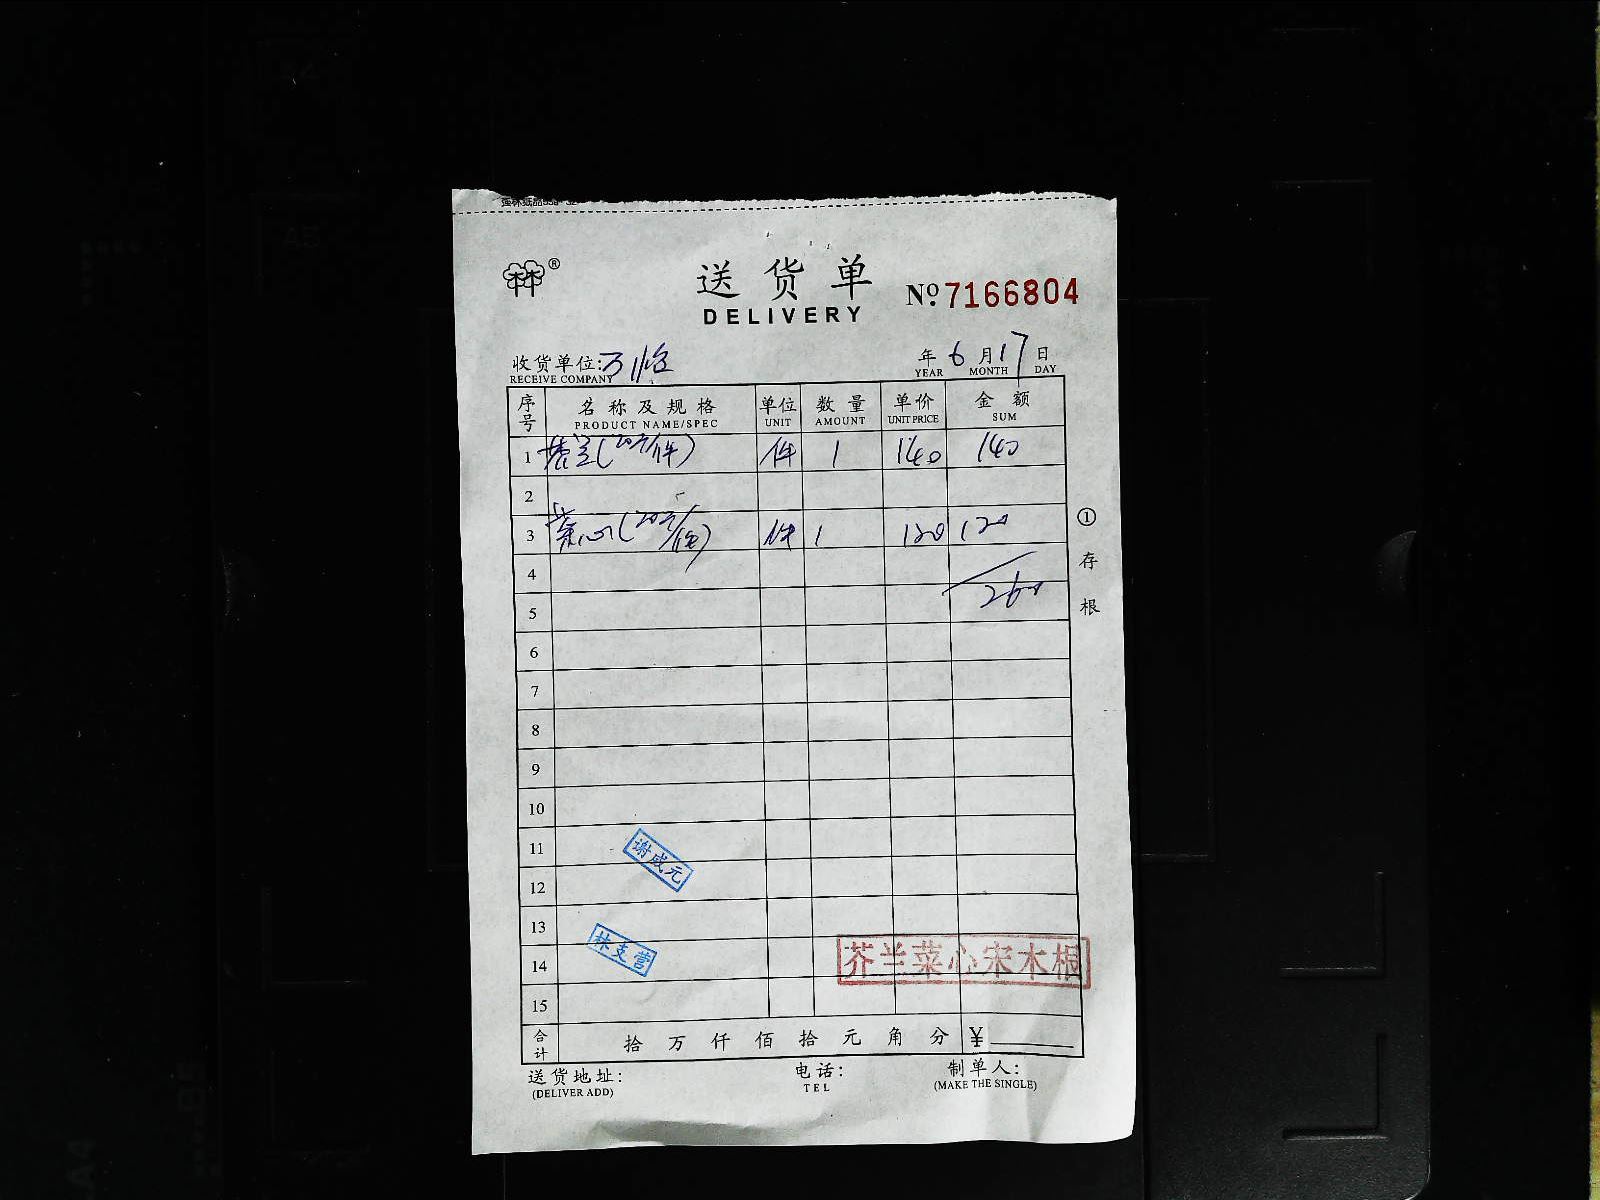 ®
送货单
№7166804
DELIVERY
收货单位:万临 年6月17日
RECEIVE COMPANY YEAR MONTH DAY
序号 名称及规格 单位 数量 单价 金额
PRODUCT NAME/SPEC UNIT AMOUNT UNIT PRICE SUM
1 芥兰(20元/件) 件 1 140 140
2
3 菜心(20元/件) 件 1 120 120
4
5 260
6
7
8
9
10
11
12
13
14
15
谢成元
林支营
芥兰菜心宋木根
合计 拾万仟佰拾元角分 ¥
送货地址: 电话: 制单人:
(DELIVER ADD) TEL (MAKE THE SINGLE)
①存根